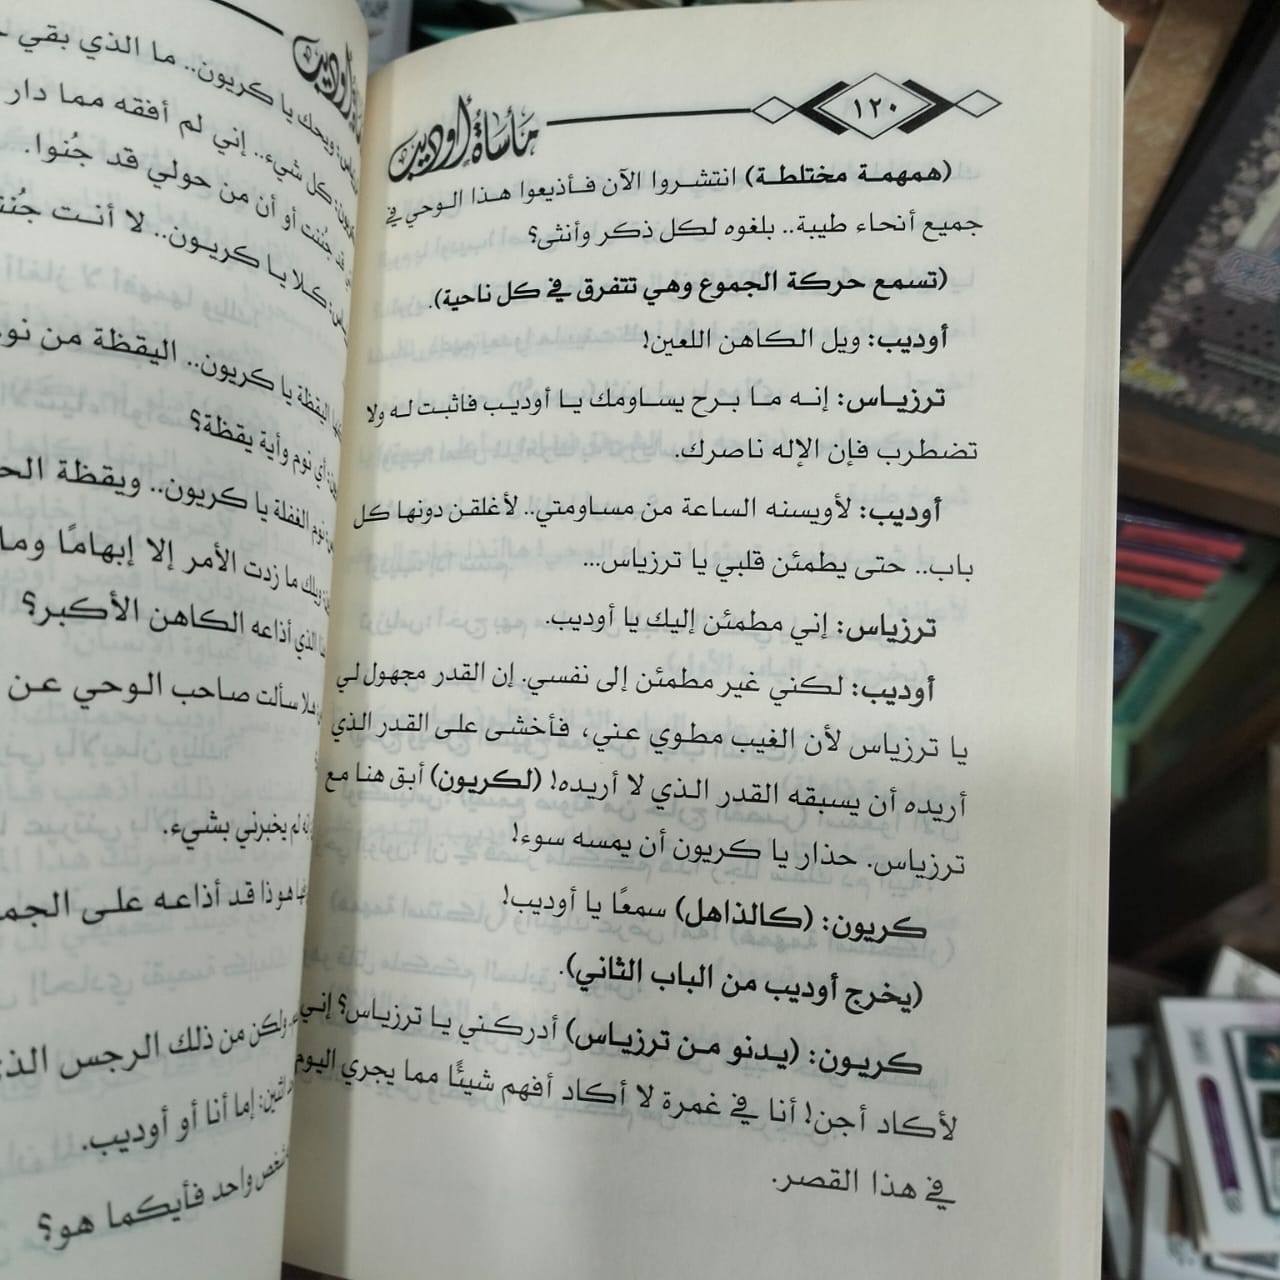 ١٢٠
مأساة أوديب
(همهمة مختلطة) انتشروا الآن فأذيعوا هذا الوحي في
جميع أنحاء طيبة.. بلغوه لكل ذكر وأنثى؟
(تسمع حركة الجموع وهي تتفرق في كل ناحية).
أوديب: ويل الكاهن اللعين!
ترزياس: إنه ما برح يساومك يا أوديب فاثبت له ولا
تضطرب فإن الإله ناصرك.
أوديب: لأويسنه الساعة من مساومتي.. لأغلقن دونها كل
باب.. حتى يطمئن قلبي يا ترزياس...
ترزياس: إني مطمئن إليك يا أوديب.
أوديب: لكني غير مطمئن إلى نفسي. إن القدر مجهول لي
يا ترزياس لأن الغيب مطوي عني، فأخشى على القدر الذي
أريده أن يسبقه القدر الذي لا أريده! (لكريون) أبق هنا مع
ترزياس. حذار يا كريون أن يمسه سوء!
كريون: (كالذاهل) سمعًا يا أوديب!
(يخرج أوديب من الباب الثاني).
كريون: (يدنو من ترزياس) أدركني يا ترزياس؟ إني
لأكاد أجن! أنا في غمرة لا أكاد أفهم شيئًا مما يجري اليوم
في هذا القصر.
أوديب
ويحك يا كريون.. ما الذي بقي
كل شيء.. إني لم أفقه مما دار
قد جُننت أو أن من حولي قد جُنوا.
كلا يا كريون.. لا أنت جُننت
اليقظة يا كريون.. اليقظة من نوم
أي نوم وأية يقظة؟
نوم الغفلة يا كريون.. ويقظة
ويلك ما زدت الأمر إلا إبهامًا وما
الذي أذاعه الكاهن الأكبر؟
سألت صاحب الوحي عن
لم يخبرني بشيء.
هوذا قد أذاعه على
ولكن من ذلك الرجس الذي
اثنين: إما أنا أو أوديب.
شخص واحد فأيكما هو؟